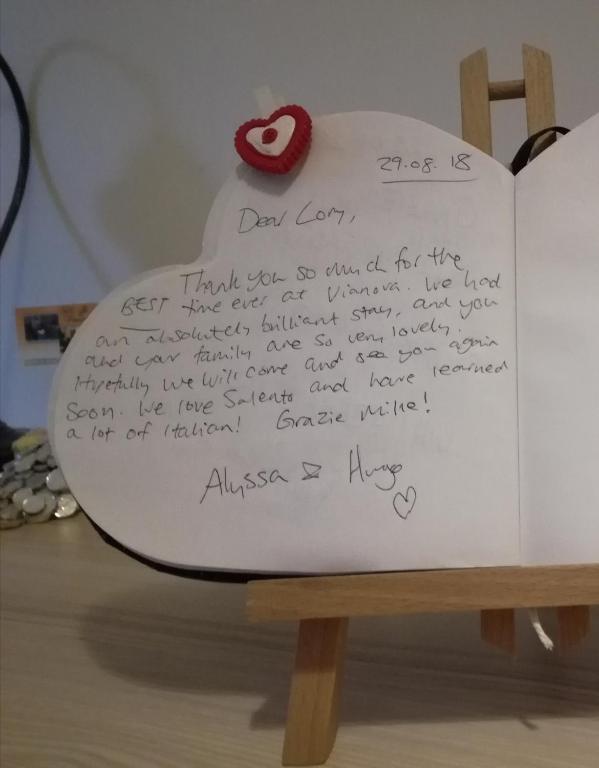 29.08.18
Dear Lory,
Thank you so much for the
BEST time ever at Vianova. We had
an absolutely brilliant stay, and you
and your family are so very lovely.
Hopefully we will come and see you again
soon. We love Salento and have learned
a lot of Italian! Grazie Mille!
Alyssa & Hugo